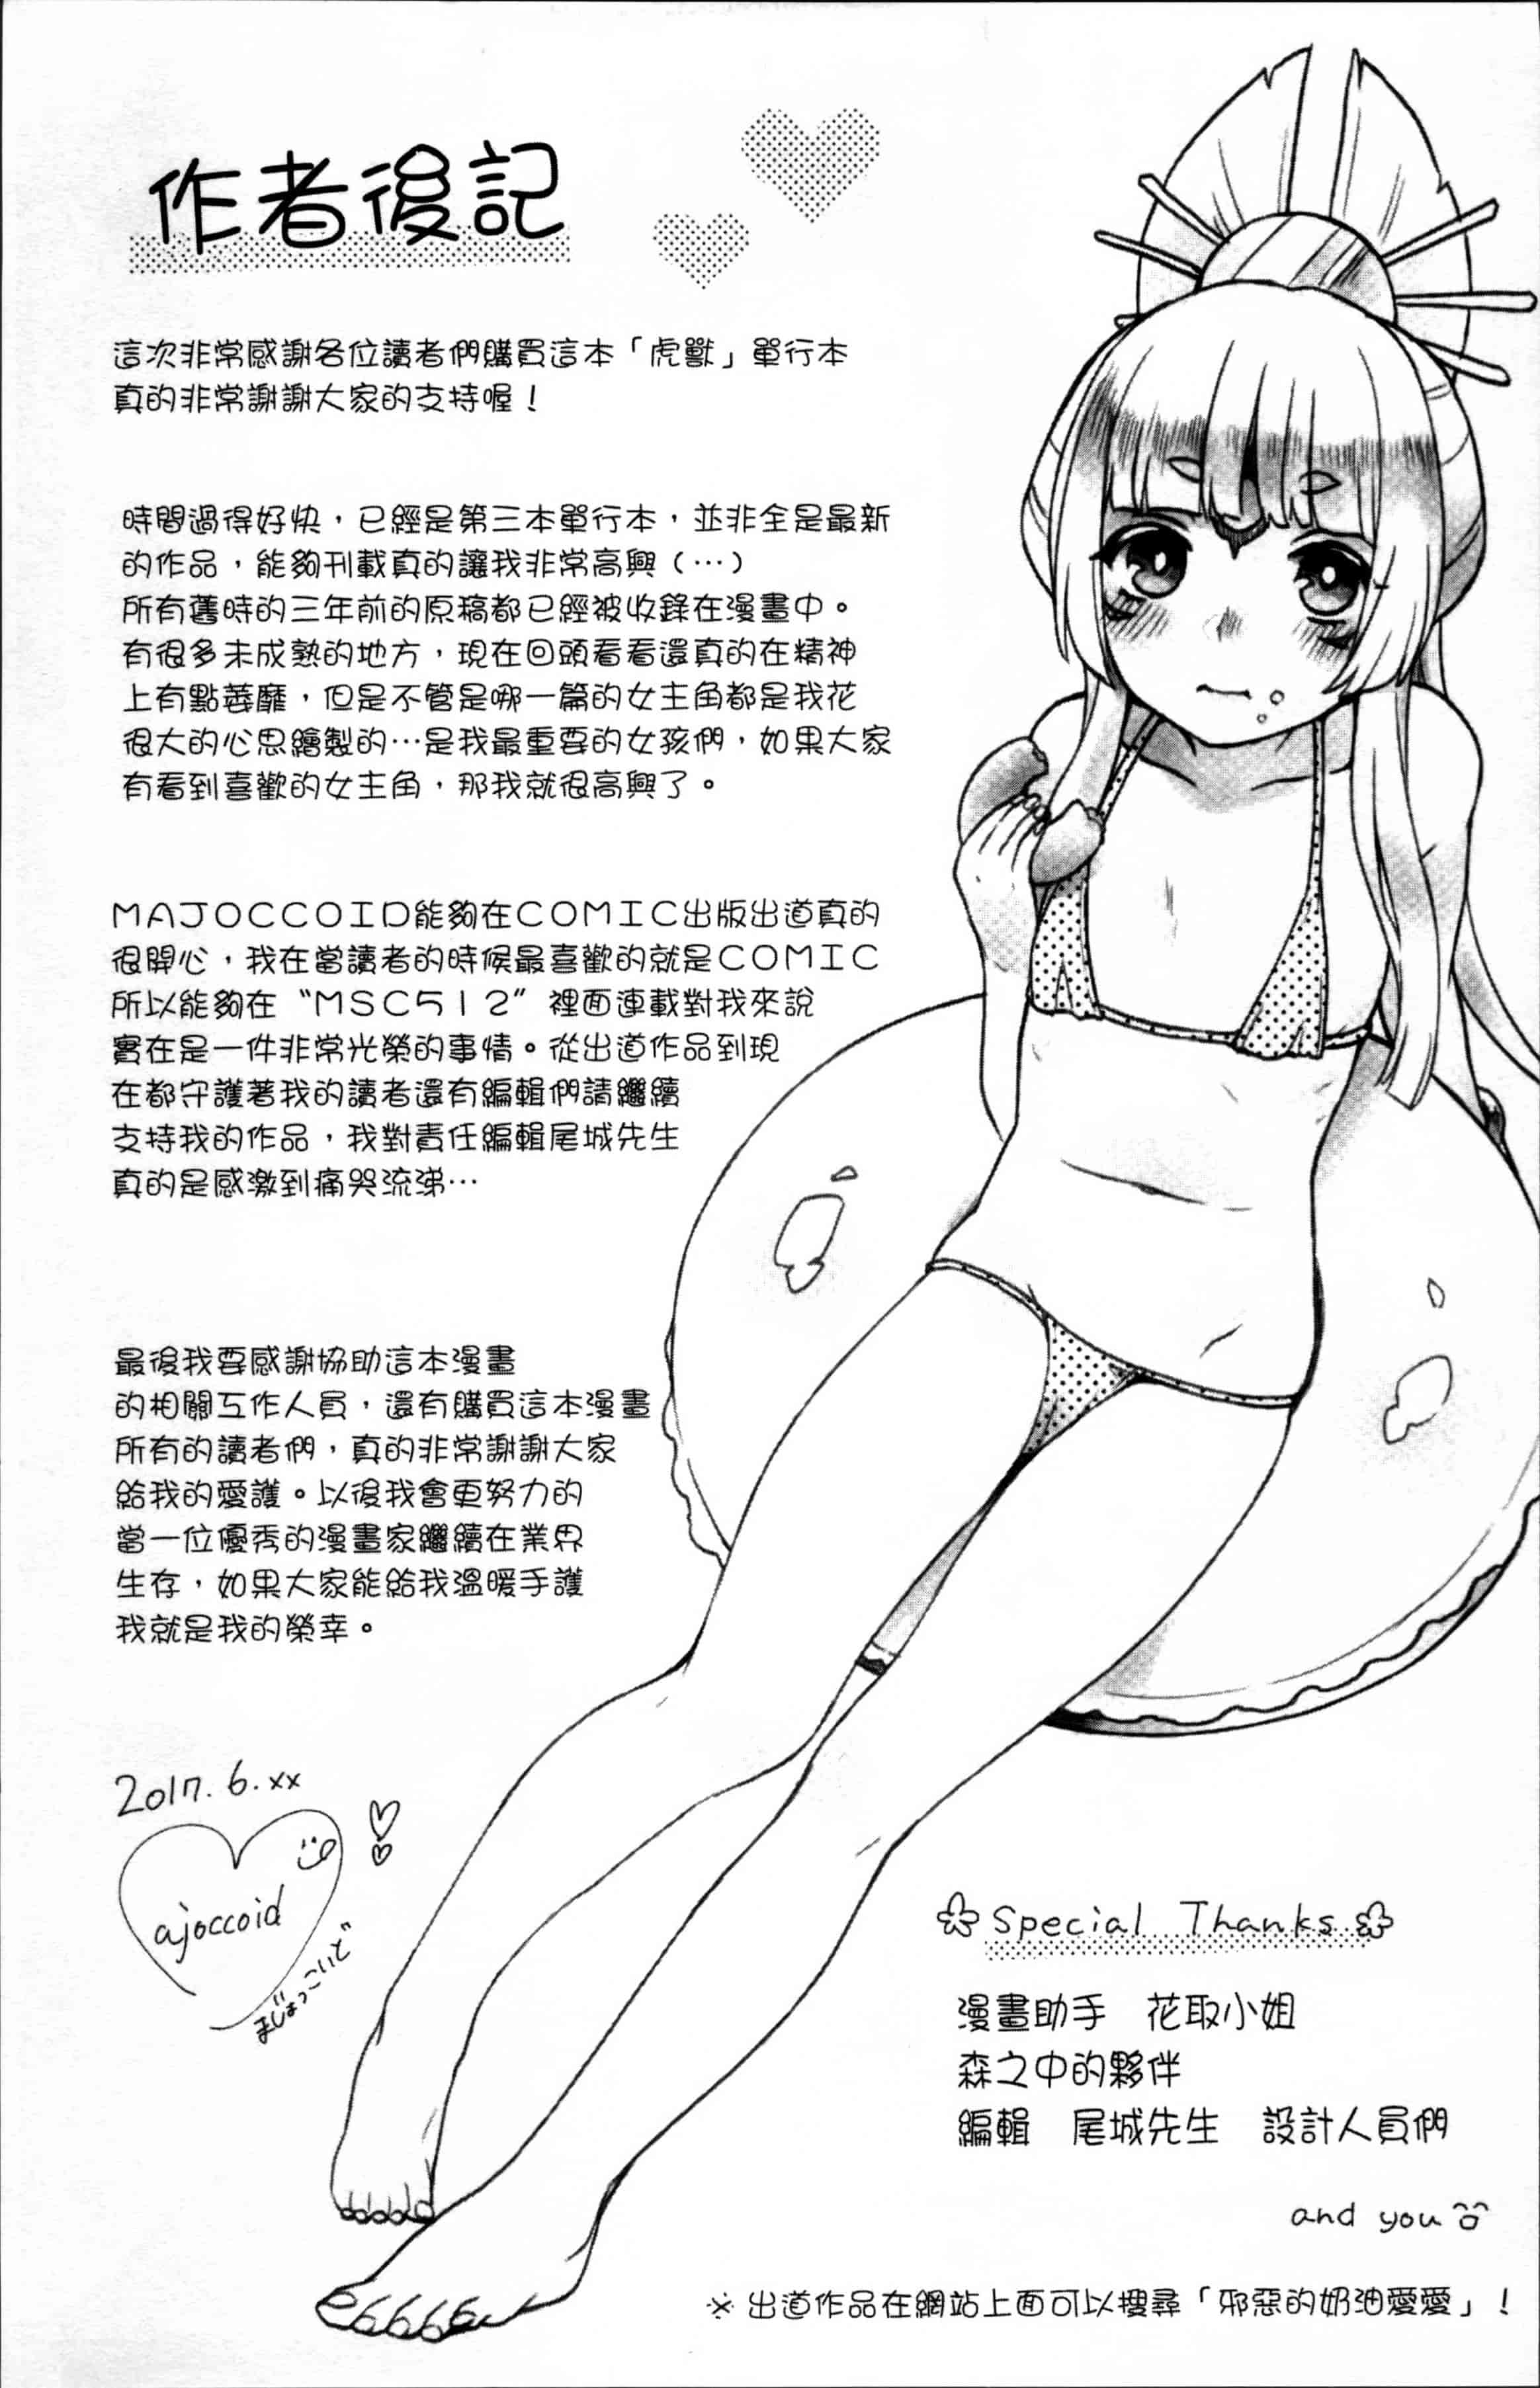 作者後記
這次非常感謝各位讀者們購買這本「虎獸」單行本
真的非常謝謝大家的支持喔！
時間過得好快，已經是第三本單行本，並非全是最新
的作品，能夠刊載真的讓我非常高興（…）
所有舊時的三年前的原稿都已經被收錄在漫畫中。
有很多未成熟的地方，現在回頭看看還真的在精神
上有點萎靡，但是不管是哪一篇的女主角都是我花
很大的心思繪製的…是我最重要的女孩們，如果大家
有看到喜歡的女主角，那我就很高興了。
MAJOCCOID能夠在COMIC出版出道真的
很開心，我在當讀者的時候最喜歡的就是COMIC
所以能夠在“MSC512”裡面連載對我來說
實在是一件非常光榮的事情。從出道作品到現
在都守護著我的讀者還有編輯們請繼續
支持我的作品，我對責任編輯尾城先生
真的是感激到痛哭流涕…
最後我要感謝協助這本漫畫
的相關工作人員，還有購買這本漫畫
所有的讀者們，真的非常謝謝大家
給我的愛護。以後我會更努力的
當一位優秀的漫畫家繼續在業界
生存，如果大家能給我溫暖手護
我就是我的榮幸。
2017.6.xx
ajoccoid
まじょっこいど
Special Thanks
漫畫助手　花取小姐
森之中的夥伴
編輯　尾城先生　設計人員們
and you
※出道作品在網站上面可以搜尋「邪惡的奶油愛愛」！